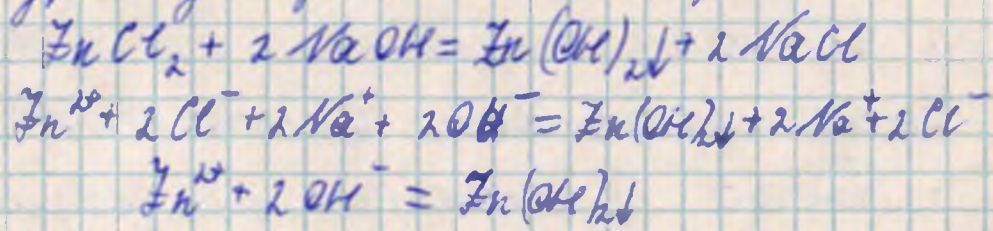 ZnCl₂ + 2NaOH = Zn(OH)₂↓ + 2NaCl
Zn²⁺ + 2Cl⁻ + 2Na⁺ + 2OH⁻ = Zn(OH)₂↓ + 2Na⁺ + 2Cl⁻
Zn²⁺ + 2OH⁻ = Zn(OH)₂↓